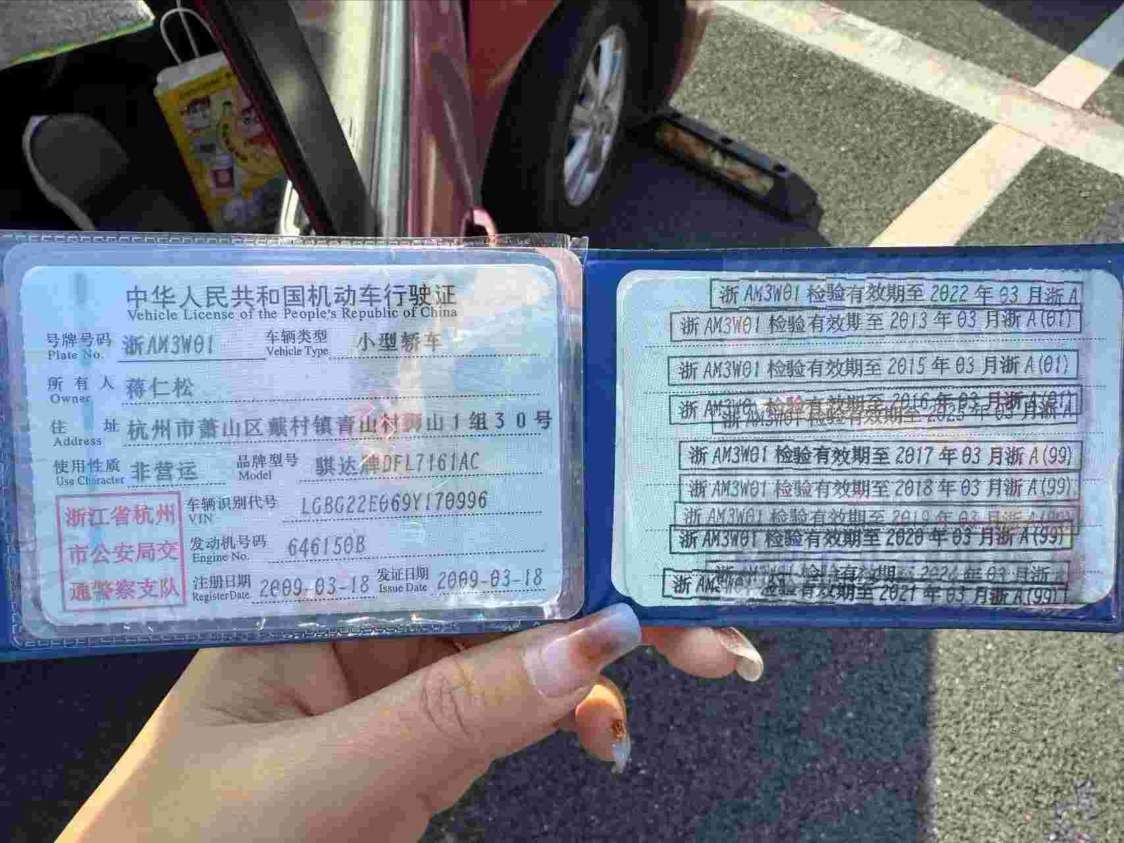 中华人民共和国机动车行驶证
Vehicle License of the People's Republic of China
号牌号码 浙AM3W01 车辆类型 小型轿车
Plate No. Vehicle Type
所有人 蒋仁松
Owner
住址 杭州市萧山区戴村镇青山村狮山1组30号
Address
使用性质 非营运 品牌型号 骐达牌DFL7161AC
Use Character Model
浙江省杭州
市公安局交
通警察支队
车辆识别代号 LGBG22E069Y170996
VIN
发动机号码 646150B
Engine No.
注册日期 2009-03-18 发证日期 2009-03-18
Register Date Issue Date
浙AM3W01检验有效期至2022年03月浙A
浙AM3W01检验有效期至2013年03月浙A(01)
浙AM3W01检验有效期至2015年03月浙A(01)
浙AM3W01检验有效期至2016年03月浙A(01)
浙AM3W01检验有效期至2025年03月浙A
浙AM3W01检验有效期至2017年03月浙A(99)
浙AM3W01检验有效期至2018年03月浙A(99)
浙AM3W01检验有效期至2019年03月浙A(99)
浙AM3W01检验有效期至2020年03月浙A(99)
浙AM3W01检验有效期至2024年03月浙A
浙AM3W01检验有效期至2021年03月浙A(99)